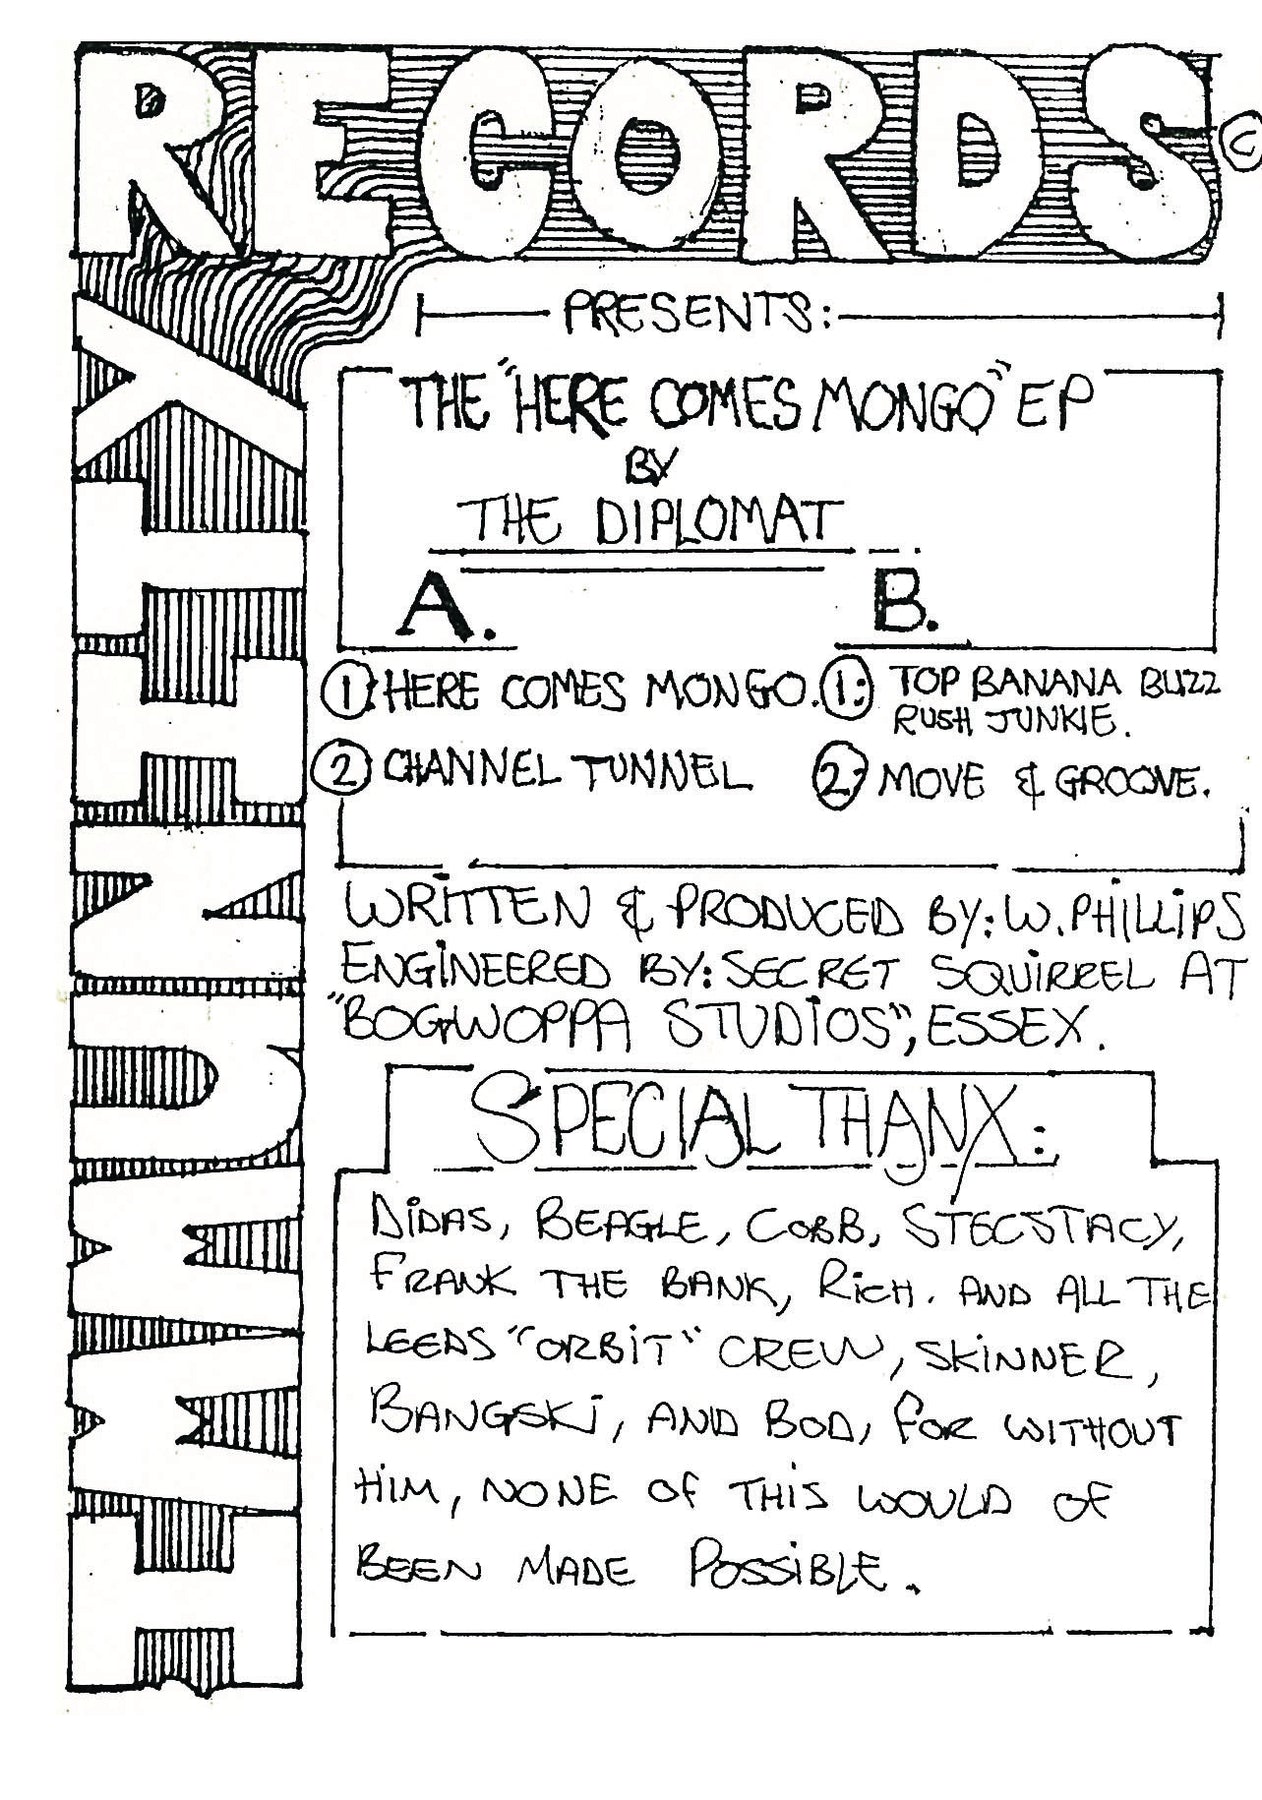 IMMUNITY
RECORDS ©
PRESENTS:
THE "HERE COMES MONGO" EP
BY
THE DIPLOMAT
A. B.
1: HERE COMES MONGO. 1: TOP BANANA BUZZ
RUSH JUNKIE.
2 CHANNEL TUNNEL 2: MOVE & GROOVE.
WRITTEN & PRODUCED BY: W. PHILLIPS
ENGINEERED BY: SECRET SQUIRREL AT
"BOGWOPPA STUDIOS", ESSEX.
SPECIAL THANX:
DIDAS, BEAGLE, COBB, STECSTACY,
FRANK THE BANK, RICH. AND ALL THE
LEEDS "ORBIT" CREW, SKINNER,
BANGSKI, AND BOD, FOR WITHOUT
HIM, NONE OF THIS WOULD OF
BEEN MADE POSSIBLE.